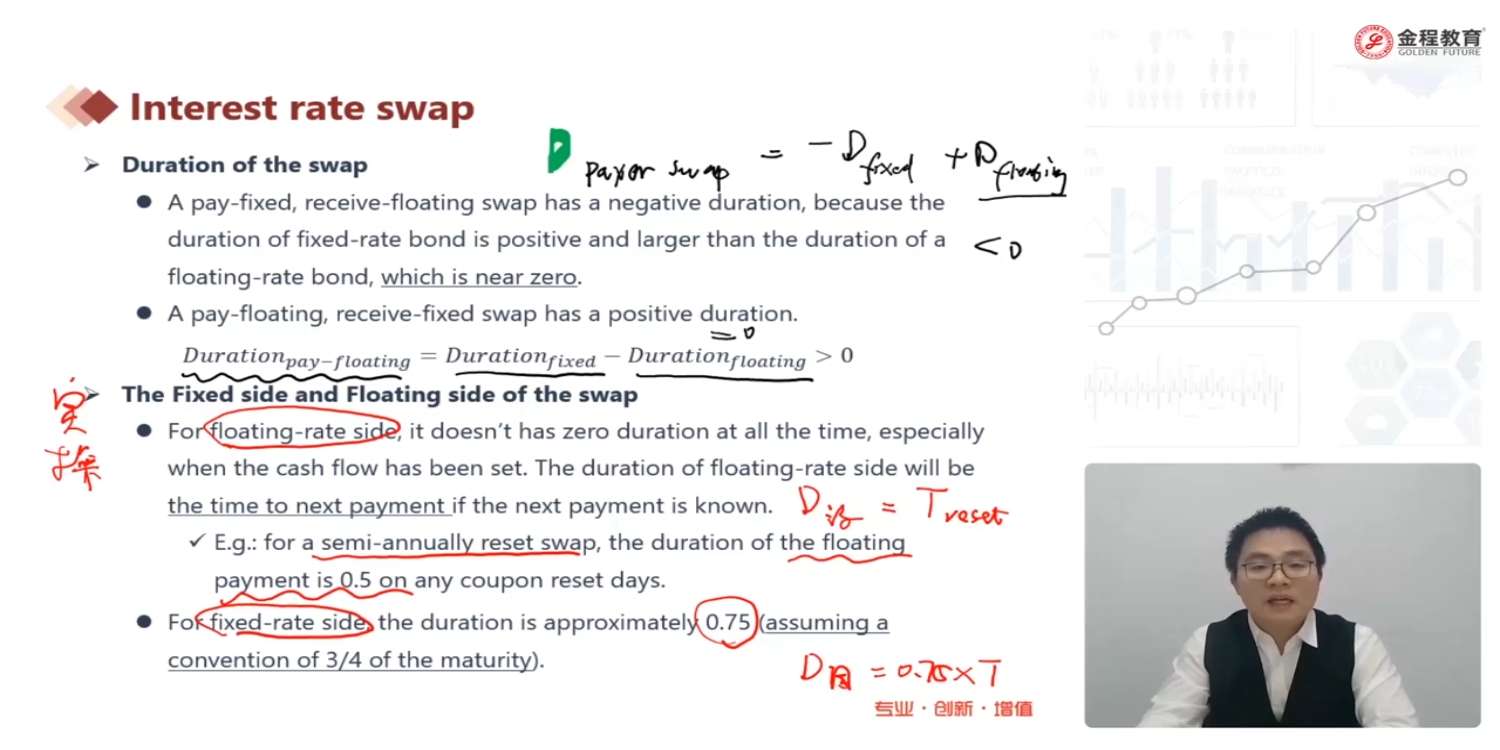 金程教育
GOLDEN FUTURE
Interest rate swap
D payer swap = - D fixed + D floating
Duration of the swap
A pay-fixed, receive-floating swap has a negative duration, because the
duration of fixed-rate bond is positive and larger than the duration of a
< 0
floating-rate bond, which is near zero.
A pay-floating, receive-fixed swap has a positive duration.
= 0
Duration pay-floating = Duration fixed − Duration floating > 0
实操
The Fixed side and Floating side of the swap
For floating-rate side, it doesn't has zero duration at all the time, especially
when the cash flow has been set. The duration of floating-rate side will be
the time to next payment if the next payment is known.
D浮 = T reset
✓ E.g.: for a semi-annually reset swap, the duration of the floating
payment is 0.5 on any coupon reset days.
For fixed-rate side, the duration is approximately 0.75 (assuming a
convention of 3/4 of the maturity).
D固 = 0.75 × T
专业·创新·增值